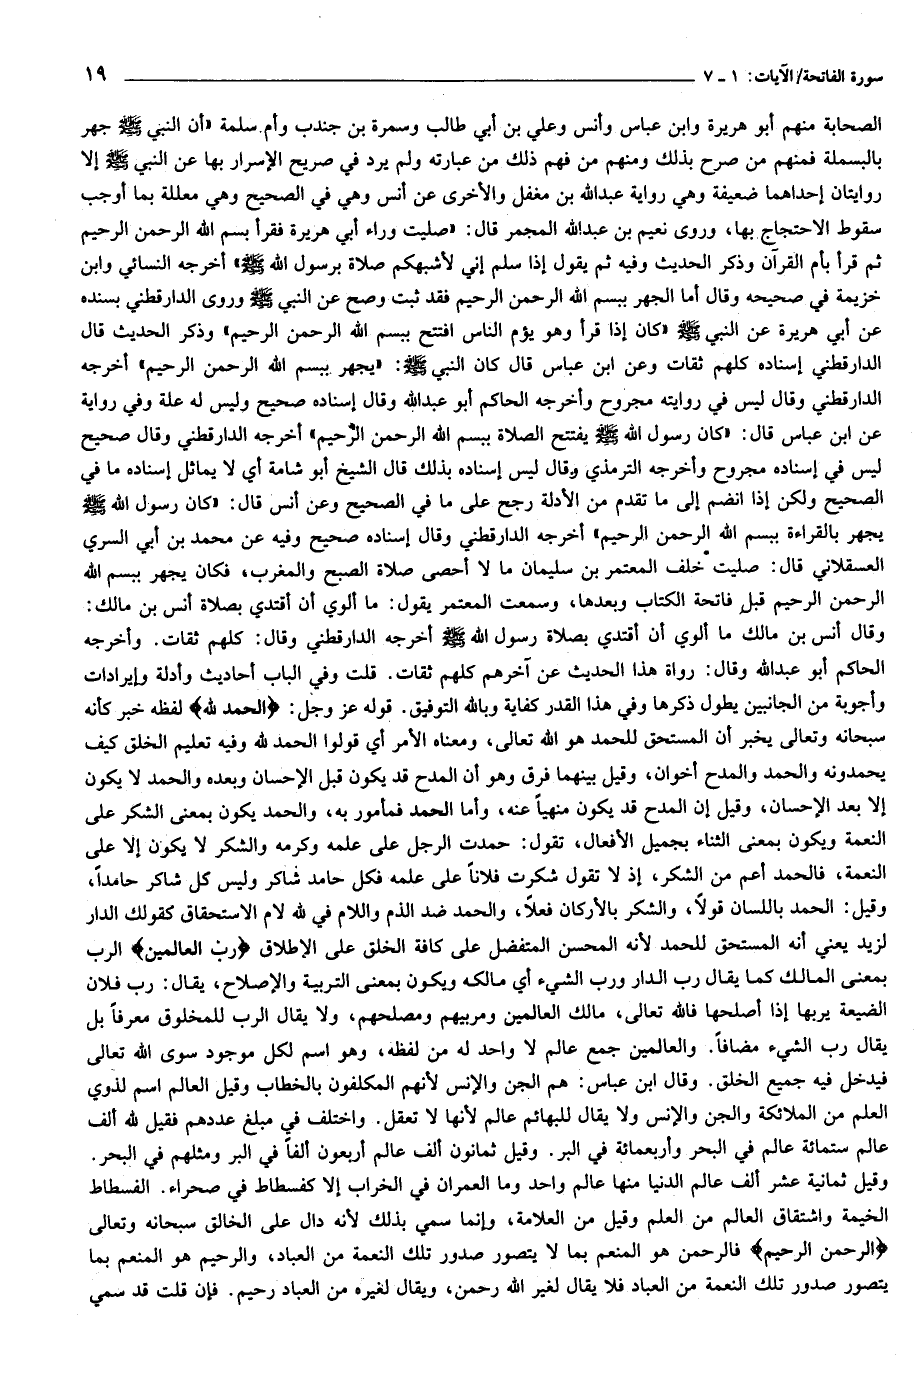 سورة الفاتحة/ الآيات: ١ ـ ٧ ١٩
الصحابة منهم أبو هريرة وابن عباس وأنس وعلي بن أبي طالب وسمرة بن جندب وأم سلمة «أن النبي ﷺ جهر
بالبسملة فمنهم من صرح بذلك ومنهم من فهم ذلك من عبارته ولم يرد في صريح الإسرار بها عن النبي ﷺ إلا
روايتان إحداهما ضعيفة وهي رواية عبدالله بن مغفل والأخرى عن أنس وهي في الصحيح وهي معللة بما أوجب
سقوط الاحتجاج بها، وروى نعيم بن عبدالله المجمر قال: «صليت وراء أبي هريرة فقرأ بسم الله الرحمن الرحيم
ثم قرأ بأم القرآن وذكر الحديث وفيه ثم يقول إذا سلم إني لأشبهكم صلاة برسول الله ﷺ» أخرجه النسائي وابن
خزيمة في صحيحه وقال أما الجهر ببسم الله الرحمن الرحيم فقد ثبت وصح عن النبي ﷺ وروى الدارقطني بسنده
عن أبي هريرة عن النبي ﷺ «كان إذا قرأ وهو يؤم الناس افتتح ببسم الله الرحمن الرحيم» وذكر الحديث قال
الدارقطني إسناده كلهم ثقات وعن ابن عباس قال كان النبي ﷺ: «يجهر ببسم الله الرحمن الرحيم» أخرجه
الدارقطني وقال ليس في روايته مجروح وأخرجه الحاكم أبو عبدالله وقال إسناده صحيح وليس له علة وفي رواية
عن ابن عباس قال: «كان رسول الله ﷺ يفتتح الصلاة ببسم الله الرحمن الرّحيم» أخرجه الدارقطني وقال صحيح
ليس في إسناده مجروح وأخرجه الترمذي وقال ليس إسناده بذلك قال الشيخ أبو شامة أي لا يماثل إسناده ما في
الصحيح ولكن إذا انضم إلى ما تقدم من الأدلة رجح على ما في الصحيح وعن أنس قال: «كان رسول الله ﷺ
يجهر بالقراءة ببسم الله الرحمن الرحيم» أخرجه الدارقطني وقال إسناده صحيح وفيه عن محمد بن أبي السري
العسقلاني قال: صليت خلف المعتمر بن سليمان ما لا أحصى صلاة الصبح والمغرب، فكان يجهر ببسم الله
الرحمن الرحيم قبل فاتحة الكتاب وبعدها، وسمعت المعتمر يقول: ما ألوي أن أقتدي بصلاة أنس بن مالك:
وقال أنس بن مالك ما ألوي أن أقتدي بصلاة رسول الله ﷺ أخرجه الدارقطني وقال: كلهم ثقات. وأخرجه
الحاكم أبو عبدالله وقال: رواة هذا الحديث عن آخرهم كلهم ثقات. قلت وفي الباب أحاديث وأدلة وإيرادات
وأجوبة من الجانبين يطول ذكرها وفي هذا القدر كفاية وبالله التوفيق. قوله عز وجل: ﴿الحمد لله﴾ لفظه خبر كأنه
سبحانه وتعالى يخبر أن المستحق للحمد هو الله تعالى، ومعناه الأمر أي قولوا الحمد لله وفيه تعليم الخلق كيف
يحمدونه والحمد والمدح أخوان، وقيل بينهما فرق وهو أن المدح قد يكون قبل الإحسان وبعده والحمد لا يكون
إلا بعد الإحسان، وقيل إن المدح قد يكون منهياً عنه، وأما الحمد فمأمور به، والحمد يكون بمعنى الشكر على
النعمة ويكون بمعنى الثناء بجميل الأفعال، تقول: حمدت الرجل على علمه وكرمه والشكر لا يكون إلا على
النعمة، فالحمد أعم من الشكر، إذ لا تقول شكرت فلاناً على علمه فكل حامد شاكر وليس كل شاكر حامداً،
وقيل: الحمد باللسان قولاً، والشكر بالأركان فعلاً، والحمد ضد الذم واللام في لله لام الاستحقاق كقولك الدار
لزيد يعني أنه المستحق للحمد لأنه المحسن المتفضل على كافة الخلق على الإطلاق ﴿رب العالمين﴾ الرب
بمعنى المالك كما يقال رب الدار ورب الشيء أي مالكه ويكون بمعنى التربية والإصلاح، يقال: رب فلان
الضيعة يربها إذا أصلحها فالله تعالى، مالك العالمين ومربيهم ومصلحهم، ولا يقال الرب للمخلوق معرفاً بل
يقال رب الشيء مضافاً. والعالمين جمع عالم لا واحد له من لفظه، وهو اسم لكل موجود سوى الله تعالى
فيدخل فيه جميع الخلق. وقال ابن عباس: هم الجن والإنس لأنهم المكلفون بالخطاب وقيل العالم اسم لذوي
العلم من الملائكة والجن والإنس ولا يقال للبهائم عالم لأنها لا تعقل. واختلف في مبلغ عددهم فقيل لله ألف
عالم ستمائة عالم في البحر وأربعمائة في البر. وقيل ثمانون ألف عالم أربعون ألفاً في البر ومثلهم في البحر.
وقيل ثمانية عشر ألف عالم الدنيا منها عالم واحد وما العمران في الخراب إلا كفسطاط في صحراء. الفسطاط
الخيمة واشتقاق العالم من العلم وقيل من العلامة، وإنما سمي بذلك لأنه دال على الخالق سبحانه وتعالى
﴿الرحمن الرحيم﴾ فالرحمن هو المنعم بما لا يتصور صدور تلك النعمة من العباد، والرحيم هو المنعم بما
يتصور صدور تلك النعمة من العباد فلا يقال لغير الله رحمن، ويقال لغيره من العباد رحيم. فإن قلت قد سمي